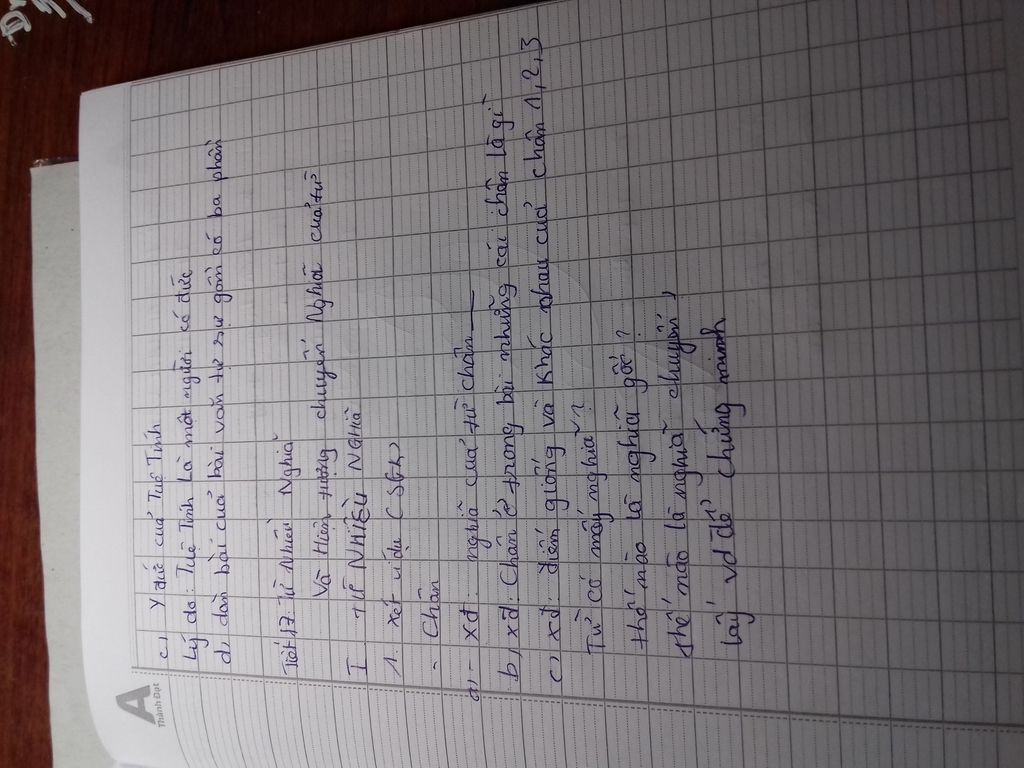 A
Thành Đạt
c, Y đức của Tuệ Tĩnh
Lý do: Tuệ Tĩnh là một người có đức
d, dàn bài của bài văn tự sự gồm có ba phần
Tiết 17: Từ Nhiều Nghĩa
Và Hiện tượng chuyển Nghĩa của từ
I TỪ NHIỀU NGHĨA
1. xét ví dụ (SGK)
- Chân
a, - xđ: nghĩa của từ chân
b, xđ: Chân ở trong bài những cái chân là gì
c, xđ: điểm giống và khác nhau của chân 1, 2, 3
Từ có mấy nghĩa?
thế nào là nghĩa gốc?
thế nào là nghĩa chuyển,
lấy vd để chứng minh